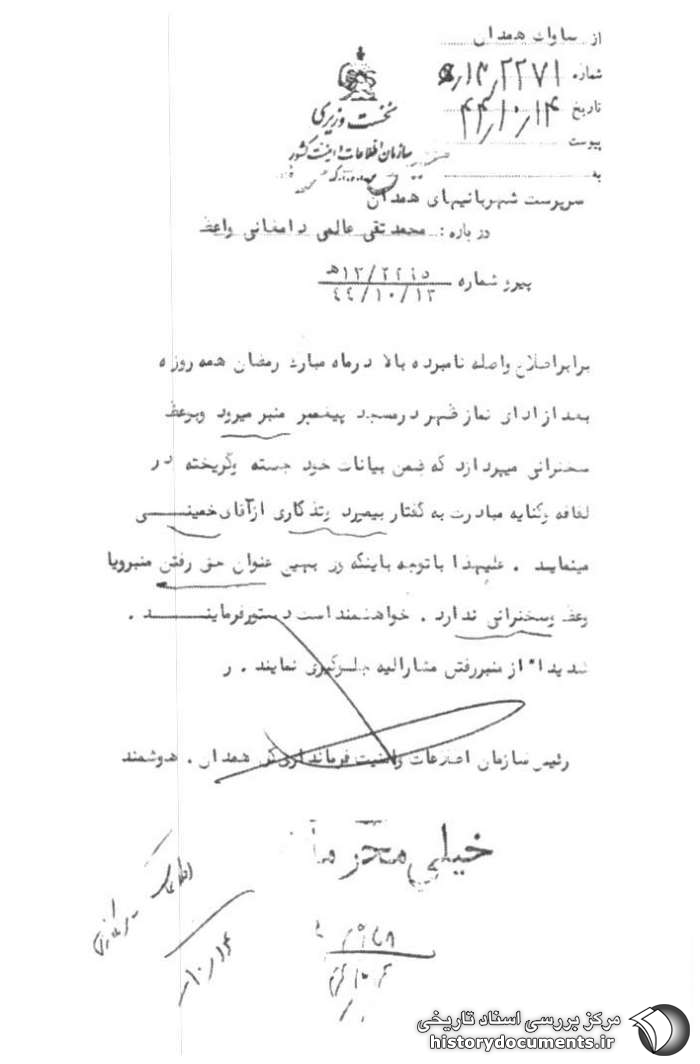 از ساواک همدان
شماره ۱۳٫۲۲۷۱/ه
تاریخ ۴۴٫۱۰٫۱۴
پیوست
به
نخست وزیری
سازمان اطلاعات و امنیت کشور
سرپرست شهربانیهای همدان
درباره: محمدتقی عالمی دامغانی واعظ
پیرو شماره ۱۳/۲۲۶۵ه
۴۴/۱۰/۱۳
برابر اطلاع واصله نامبرده بالا در ماه مبارک رمضان همه روزه
بعد از ادای نماز ظهر در مسجد پیغمبر منبر میرود وبوعظ
سخنرانی میپردازد که ضمن بیانات خود جسته وگریخته در
لفافه وکنایه مبادرت به گفتار بیمورد وتذکاری ازآقای خمینی
مینماید . علیهذا با توجه باینکه وی بهیچ عنوان حق رفتن منبرویا
وعظ وسخنرانی ندارد . خواهشمند است دستورفرمایند .
شدیدا" از منبررفتن مشارالیه جلوگیری نمایند . ر
رئیس سازمان اطلاعات وامنیت فرمانداریکل همدان . هوشمند
خیلی محرمانه
اطلاعات
۱۰٫۱۴
مرکز بررسی اسناد تاریخی
historydocuments.ir